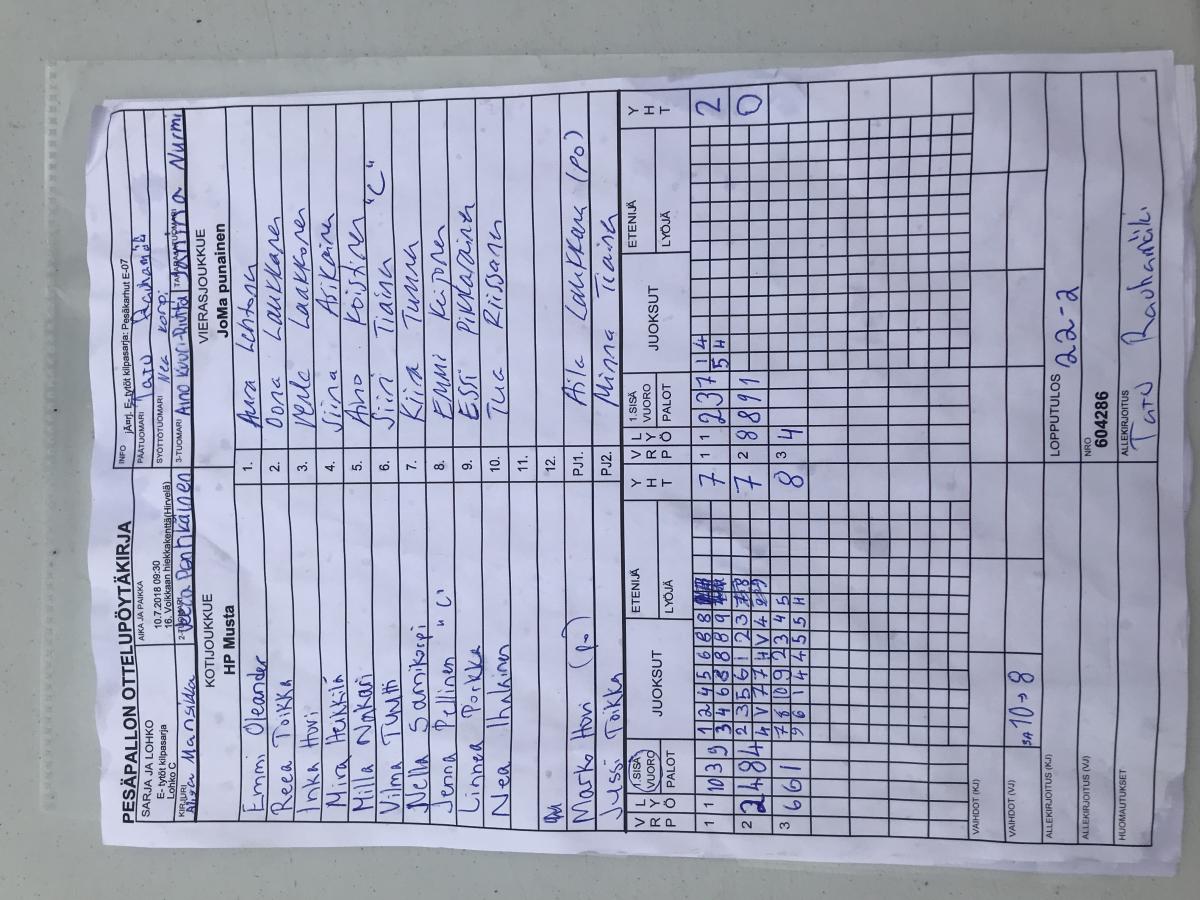 PESÄPALLON OTTELUPÖYTÄKIRJA
SARJA JA LOHKO
E- tytöt kilpasarja
Lohko C
AIKA JA PAIKKA
10.7.2018 09:30
16. Voikkaan hiekkakenttä(Hirvelä)
INFO jÄ¤rj. E- tytöt kilpasarja: Pesäkarhut E-07
PÄÄTUOMARI Taru Rauhamäki
SYÖTTÖTUOMARI Nea Korpi
KIRJURI
Mansikka
2-TUOMARI Veera Pantikäinen
3-TUOMARI Aino Kouvi-Ruutta
TAKARAJATUOMARI Janina Nurmi
KOTIJOUKKUE
HP Musta
VIERASJOUKKUE
JoMa punainen
Emmi Oleander 1. Aura Lehtona
Reea Toikka 2. Oona Laukkanen
Inka Hovi 3. Venla Laakkonen
Mira Heikkilä 4. Siina Asikainen
Milla Nokari 5. Aino Koistinen
Vilma Tuutti 6. Siiri Tiainen "C"
Nella Sarvikorpi 7. Kiira Tunna
Jenna Pellinen "C" 8. Emmi Keijonen
Linnea Porkka 9. Essi Pikkarainen
Nea Ihalainen 10. Tua Riissanen
11.
12.
Marko Hovi (Po) PJ1. Aila Laukkanen (Po)
Jussi Toikka PJ2. Minna Tiainen
VRÖ LYÖ 1.SISÄ VUORO PALOT JUOKSUT ETENIJÄ LYÖJÄ YHT VRÖ LYÖ 1.SISÄ VUORO PALOT JUOKSUT ETENIJÄ LYÖJÄ YHT
1 1 10 3 9 1 2 4 5 6 8 8 7 1 1 2 3 7 1 4 2
3 4 6 8 8 8 9 5 H
2 2 4 8 4 2 3 5 6 1 2 3 7 2 8 8 9 1 0
4 V 7 7 H V 4
3 6 6 1 7 8 10 9 2 3 4 5 8 3 4
9 6 1 4 4 5 5 H
VAIHDOT (KJ)
VAIHDOT (VJ) 3A 10→8
ALLEKIRJOITUS (KJ)
LOPPUTULOS 22-2
ALLEKIRJOITUS (VJ)
NRO
604286
HUOMAUTUKSET
ALLEKIRJOITUS
Taru Rauhamäki